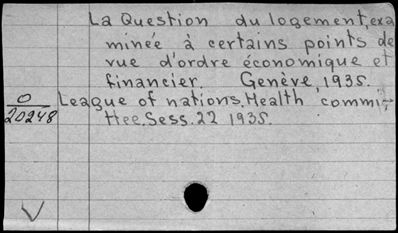 La Question du logement, exa
minée à certains points de
vue d'ordre économique et
financier. Genève, 1935.
O
20248
League of nations. Health commi-
ttee. Sess. 22 1935.